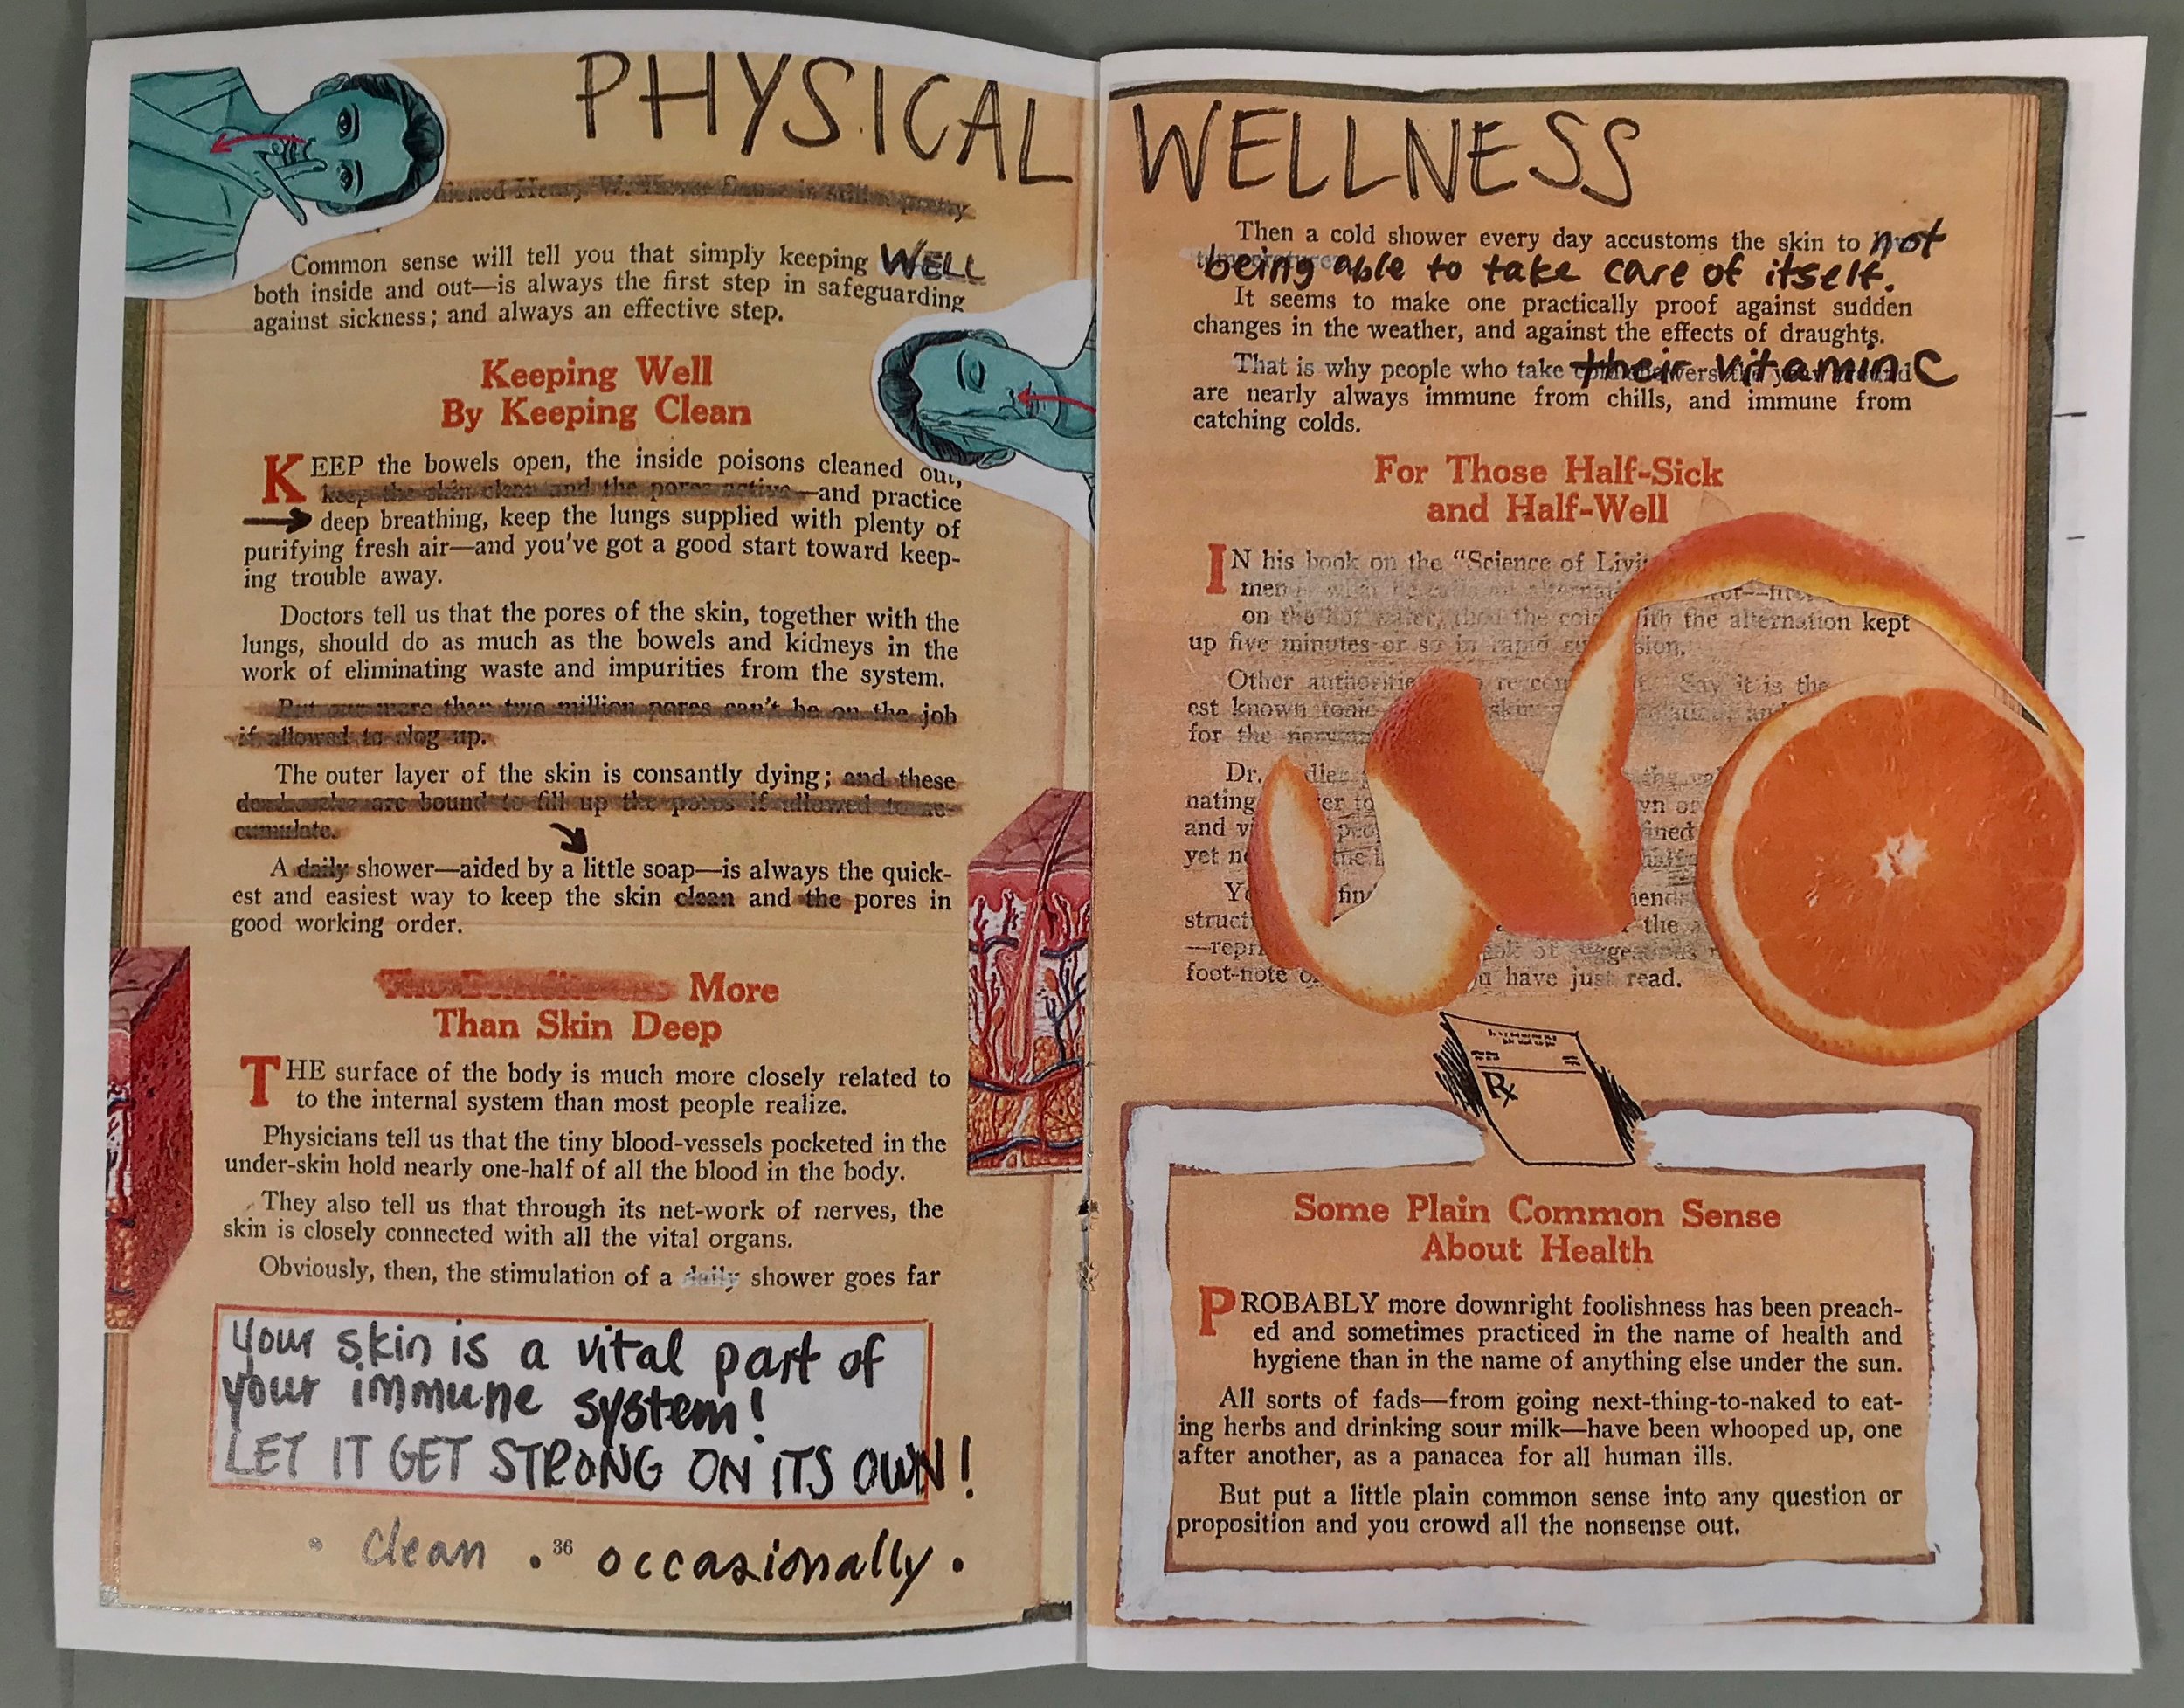 PHYSICAL WELLNESS
Common sense will tell you that simply keeping WELL
both inside and out—is always the first step in safeguarding
against sickness; and always an effective step.
Keeping Well
By Keeping Clean
KEEP the bowels open, the inside poisons cleaned out,
keep the skin clean and the pores active—and practice
deep breathing, keep the lungs supplied with plenty of
purifying fresh air—and you've got a good start toward keep-
ing trouble away.
Doctors tell us that the pores of the skin, together with the
lungs, should do as much as the bowels and kidneys in the
work of eliminating waste and impurities from the system.
But our more than two million pores can't be on the job
if allowed to clog up.
The outer layer of the skin is consantly dying; and these
dead scales are bound to fill up the pores if allowed to ac-
cumulate.
A daily shower—aided by a little soap—is always the quick-
est and easiest way to keep the skin clean and the pores in
good working order.
More
Than Skin Deep
THE surface of the body is much more closely related to
to the internal system than most people realize.
Physicians tell us that the tiny blood-vessels pocketed in the
under-skin hold nearly one-half of all the blood in the body.
They also tell us that through its net-work of nerves, the
skin is closely connected with all the vital organs.
Obviously, then, the stimulation of a daily shower goes far
your skin is a vital part of
your immune system!
LET IT GET STRONG ON ITS OWN!
• clean • 36 occasionally •
Then a cold shower every day accustoms the skin to not
being able to take care of itself.
It seems to make one practically proof against sudden
changes in the weather, and against the effects of draughts.
That is why people who take their vitamin C
are nearly always immune from chills, and immune from
catching colds.
For Those Half-Sick
and Half-Well
IN his book on the "Science of
men
on the hot water, then the cold with the alternation kept
up five minutes or so in rapid
Other Say it is the
est known tonic
for the
Dr.
nating
and
yet
find
struct the
foot-note have just read.
Rx
Some Plain Common Sense
About Health
PROBABLY more downright foolishness has been preach-
ed and sometimes practiced in the name of health and
hygiene than in the name of anything else under the sun.
All sorts of fads—from going next-thing-to-naked to eat-
ing herbs and drinking sour milk—have been whooped up, one
after another, as a panacea for all human ills.
But put a little plain common sense into any question or
proposition and you crowd all the nonsense out.